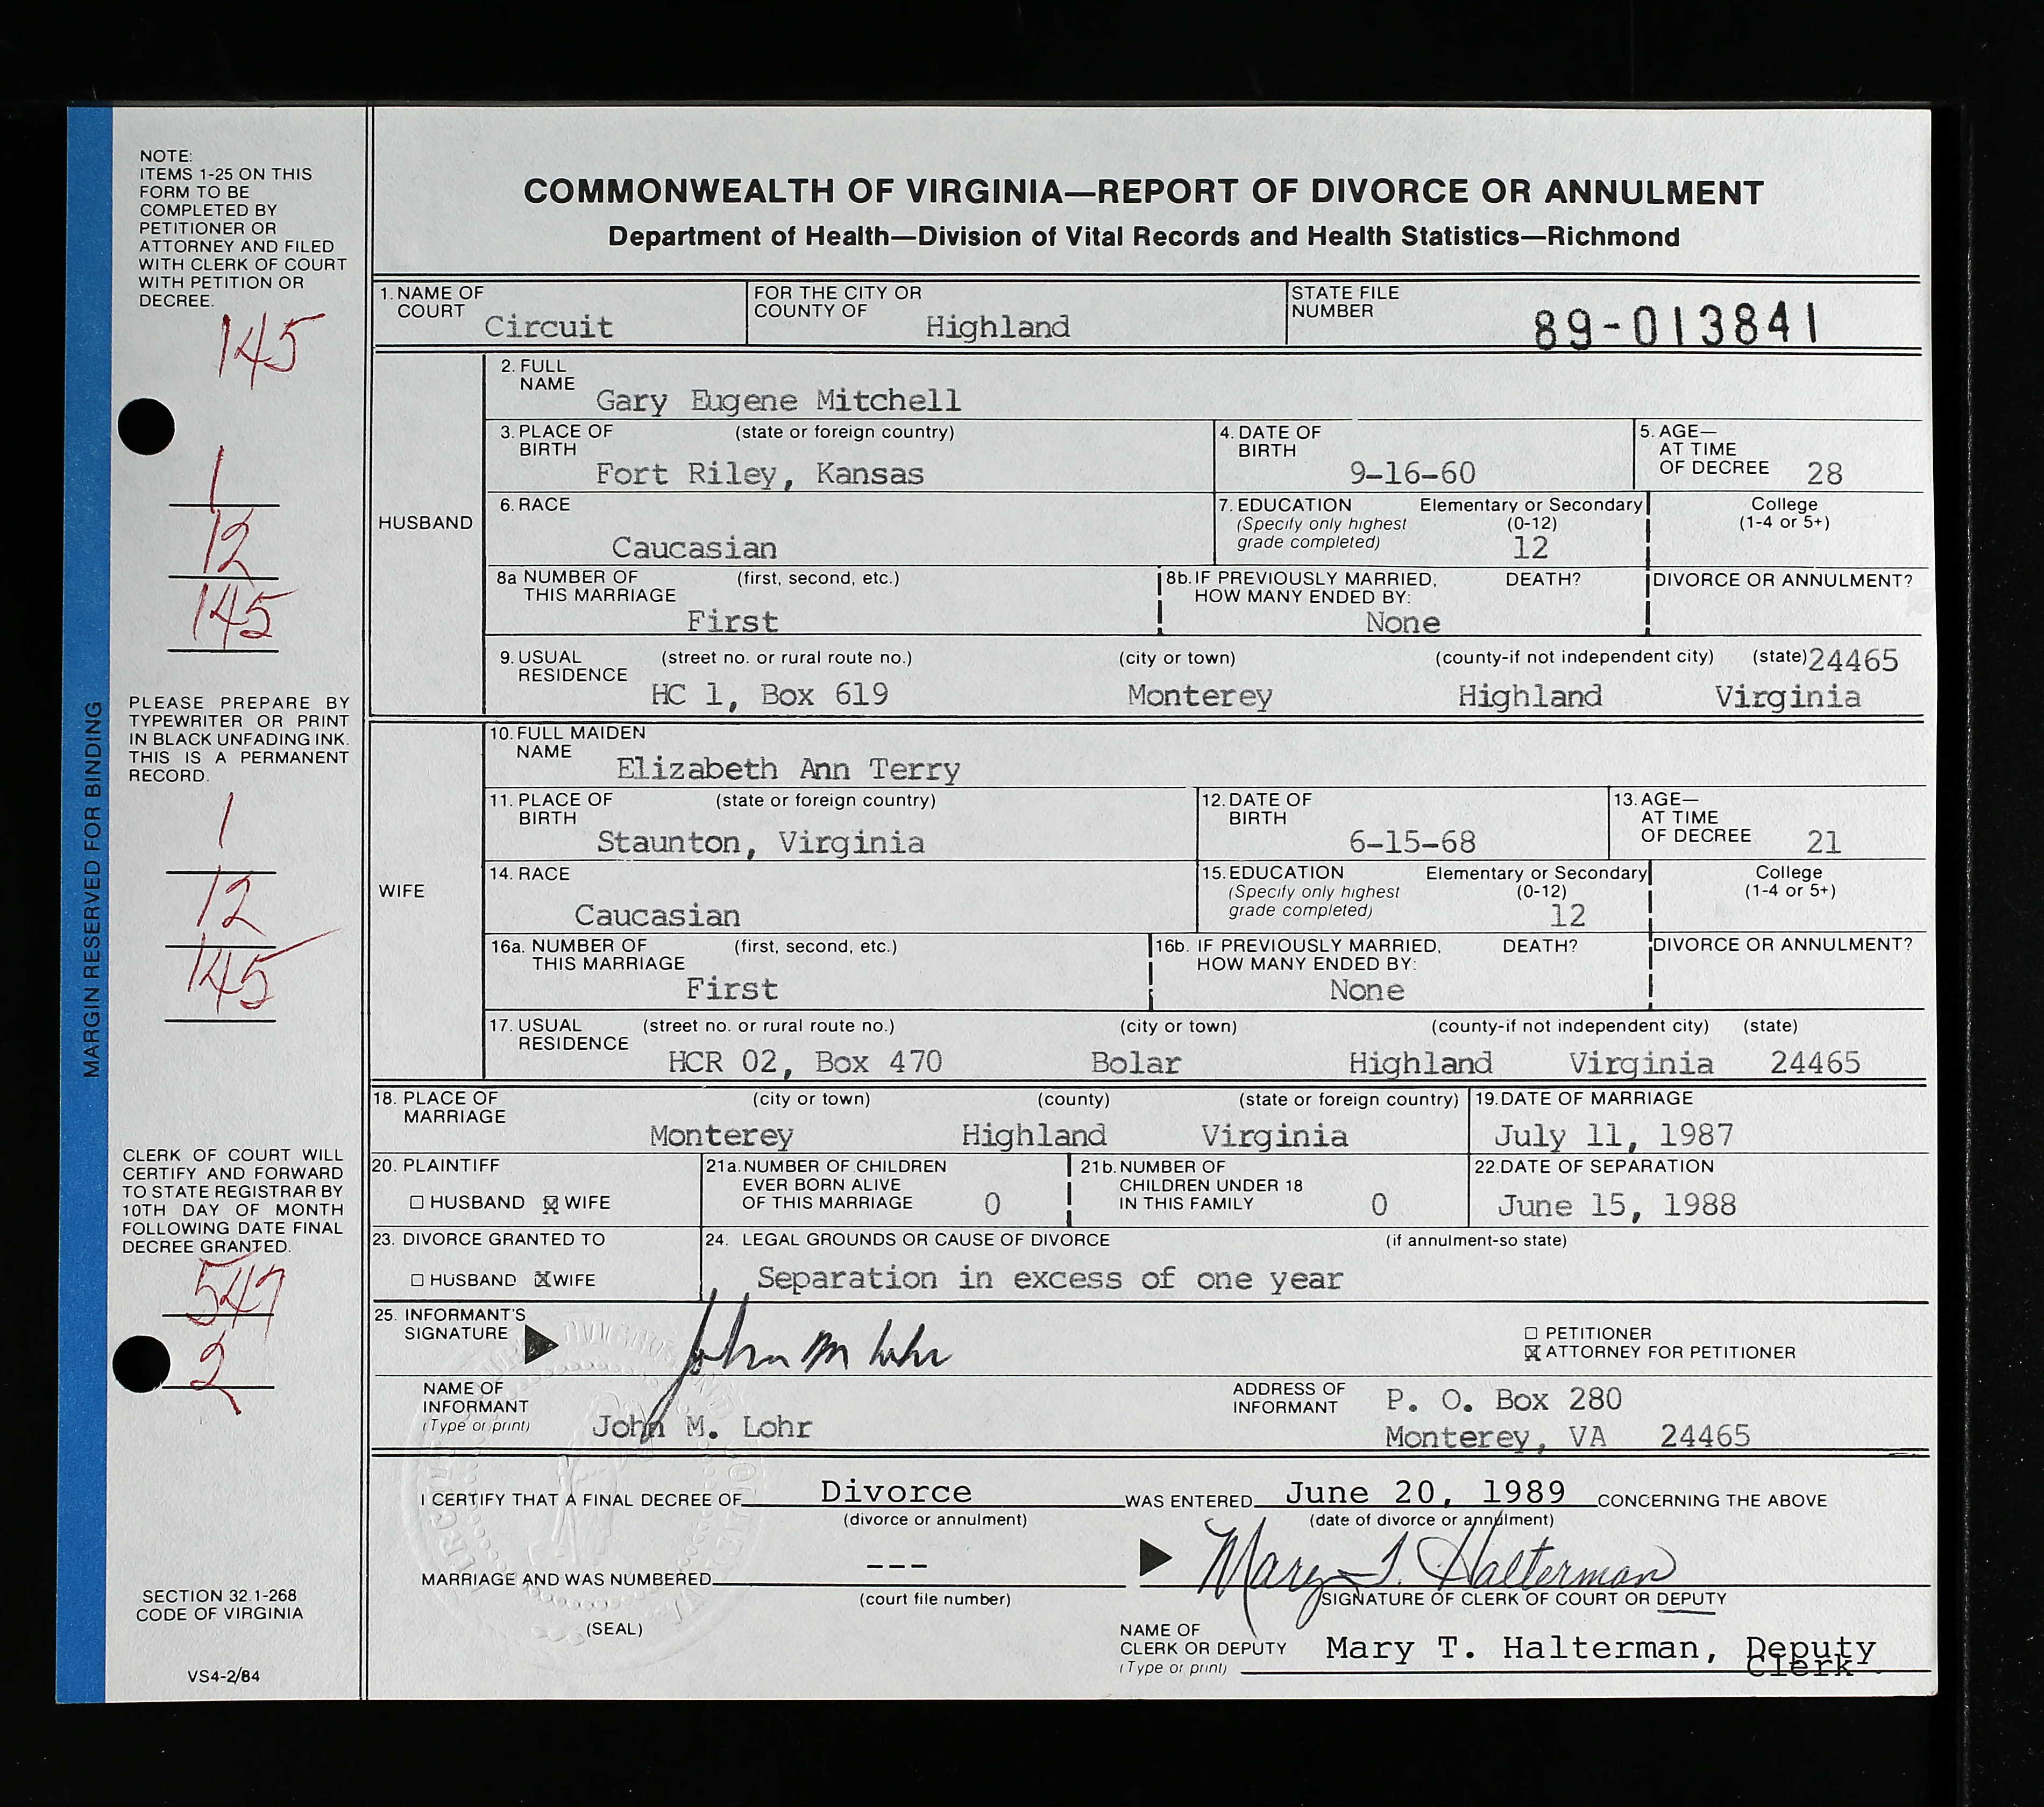 NOTE:
ITEMS 1-25 ON THIS
FORM TO BE
COMPLETED BY
PETITIONER OR
ATTORNEY AND FILED
WITH CLERK OF COURT
WITH PETITION OR
DECREE.
145
1
12
145
PLEASE PREPARE BY
TYPEWRITER OR PRINT
IN BLACK UNFADING INK.
THIS IS A PERMANENT
RECORD.
1
12
145
CLERK OF COURT WILL
CERTIFY AND FORWARD
TO STATE REGISTRAR BY
10TH DAY OF MONTH
FOLLOWING DATE FINAL
DECREE GRANTED.
547
2
SECTION 32.1-268
CODE OF VIRGINIA
VS4-2/84
MARGIN RESERVED FOR BINDING
COMMONWEALTH OF VIRGINIA—REPORT OF DIVORCE OR ANNULMENT
Department of Health—Division of Vital Records and Health Statistics—Richmond
1. NAME OF COURT Circuit
FOR THE CITY OR COUNTY OF Highland
STATE FILE NUMBER 89-013841
HUSBAND
2. FULL NAME Gary Eugene Mitchell
3. PLACE OF BIRTH (state or foreign country) Fort Riley, Kansas
4. DATE OF BIRTH 9-16-60
5. AGE— AT TIME OF DECREE 28
6. RACE Caucasian
7. EDUCATION (Specify only highest grade completed) Elementary or Secondary (0-12) 12 College (1-4 or 5+)
8a NUMBER OF THIS MARRIAGE (first, second, etc.) First
8b. IF PREVIOUSLY MARRIED, HOW MANY ENDED BY: DEATH? None DIVORCE OR ANNULMENT?
9. USUAL RESIDENCE (street no. or rural route no.) (city or town) (county-if not independent city) (state) 24465
HC 1, Box 619 Monterey Highland Virginia
WIFE
10. FULL MAIDEN NAME Elizabeth Ann Terry
11. PLACE OF BIRTH (state or foreign country) Staunton, Virginia
12. DATE OF BIRTH 6-15-68
13. AGE— AT TIME OF DECREE 21
14. RACE Caucasian
15. EDUCATION (Specify only highest grade completed) Elementary or Secondary (0-12) 12 College (1-4 or 5+)
16a. NUMBER OF THIS MARRIAGE (first, second, etc.) First
16b. IF PREVIOUSLY MARRIED, HOW MANY ENDED BY: DEATH? None DIVORCE OR ANNULMENT?
17. USUAL RESIDENCE (street no. or rural route no.) (city or town) (county-if not independent city) (state)
HCR 02, Box 470 Bolar Highland Virginia 24465
18. PLACE OF MARRIAGE (city or town) (county) (state or foreign country)
Monterey Highland Virginia
19. DATE OF MARRIAGE July 11, 1987
20. PLAINTIFF
☐ HUSBAND ☒ WIFE
21a. NUMBER OF CHILDREN EVER BORN ALIVE OF THIS MARRIAGE 0
21b. NUMBER OF CHILDREN UNDER 18 IN THIS FAMILY 0
22. DATE OF SEPARATION June 15, 1988
23. DIVORCE GRANTED TO
☐ HUSBAND ☒ WIFE
24. LEGAL GROUNDS OR CAUSE OF DIVORCE (if annulment-so state)
Separation in excess of one year
25. INFORMANT'S SIGNATURE John M Lohr
☐ PETITIONER
☒ ATTORNEY FOR PETITIONER
NAME OF INFORMANT (Type or print) John M. Lohr
ADDRESS OF INFORMANT P. O. Box 280
Monterey, VA 24465
I CERTIFY THAT A FINAL DECREE OF Divorce WAS ENTERED June 20, 1989 CONCERNING THE ABOVE
(divorce or annulment) (date of divorce or annulment)
MARRIAGE AND WAS NUMBERED --- Mary T. Halterman
(court file number) SIGNATURE OF CLERK OF COURT OR DEPUTY
(SEAL)
NAME OF CLERK OR DEPUTY (Type or print) Mary T. Halterman, Deputy
Clerk